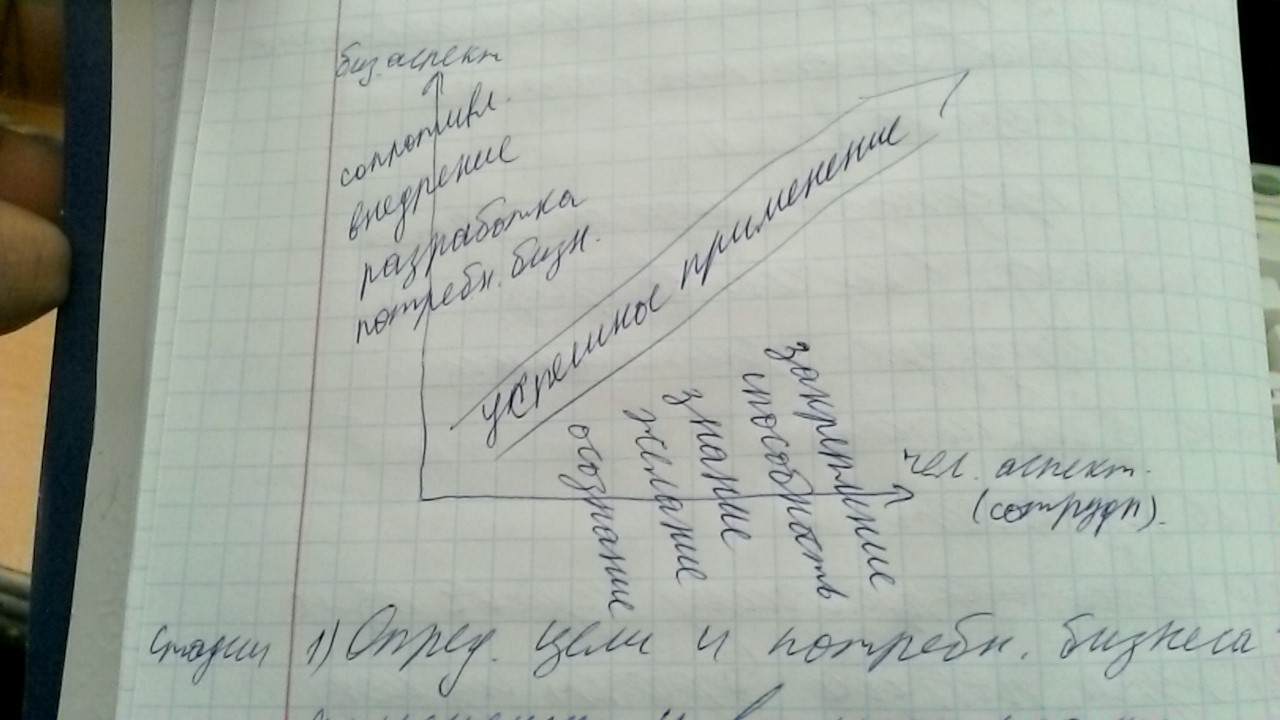 биз. аспект
сопротивл.
внедрение
разработка
потребн. бизн.
успешное применение
осознание
желание
знание
способность
закрепление
чел. аспект.
(сотрудн).
стадии 1) Опред. цели и потребн. бизнеса